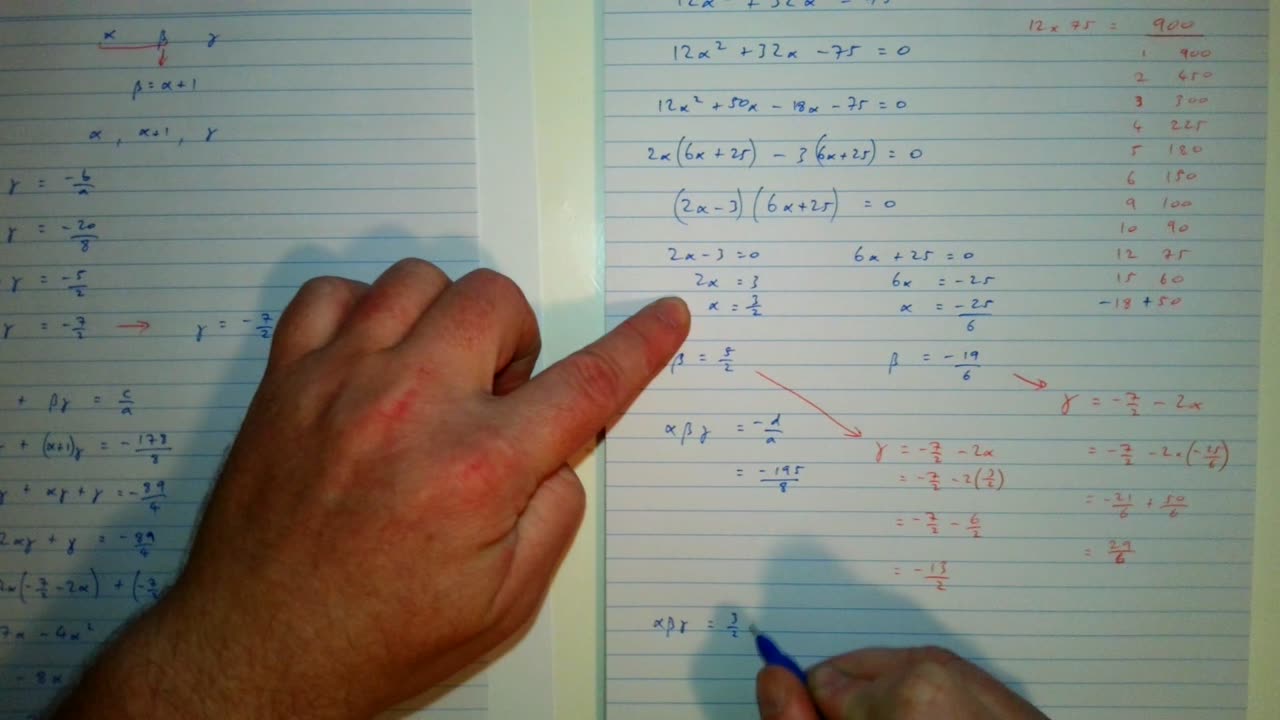 α β γ
β = α + 1
α , α+1 , γ
γ = -b/a
γ = -20/8
γ = -5/2
γ = -7/2 → γ = -7/2
+ βγ = c/a
+ (α+1)γ = -178/8
+ αγ + γ = -89/4
2αγ + γ = -89/4
(-7/2 - 2α) + (-7/2
7α - 4α²
- 8α
12α² + 32α - 75 = 0
12α² + 50α - 18α - 75 = 0
2α(6α + 25) - 3(6α+25) = 0
(2α - 3)(6α+25) = 0
2α - 3 = 0
2α = 3
α = 3/2
β = 5/2
6α + 25 = 0
6α = -25
α = -25/6
β = -19/6
αβγ = -d/a
= -195/8
γ = -7/2 - 2α
= -7/2 - 2(3/2)
= -7/2 - 6/2
= -13/2
γ = -7/2 - 2α
= -7/2 - 2×(-25/6)
= -21/6 + 50/6
= 29/6
αβγ = 3/2
12 × 75 = 900
1 900
2 450
3 300
4 225
5 180
6 150
9 100
10 90
12 75
15 60
-18 +50